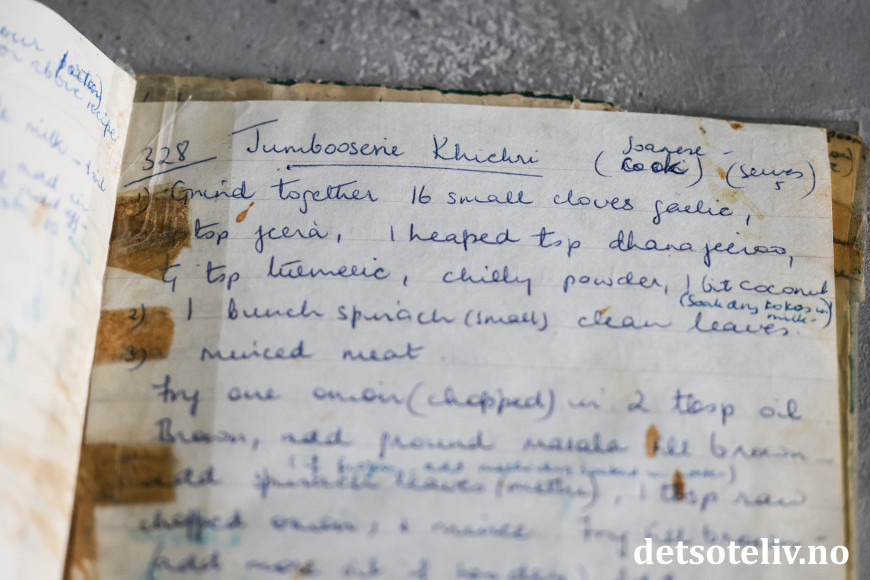 our
for above recipe
milk
add
328 Jumbooserie Khichri (Soanere - Cook) (serves 5)
1) Grind together 16 small cloves garlic,
tsp jeera, 1 heaped tsp dhana jeeroo,
1/4 tsp tumeric, chilly powder, 1 bit coconut
(Soak dry kokos in milk-)
2) 1 bunch spinach (small) clean leaves.
3) minced meat.
Fry one onion (chopped) in 2 tbsp oil
Brown, add ground masala till brown -
add spinach leaves (methi), 1 tbsp raw
chopped onion, & mince fry till brown -
add
detsoteliv.no